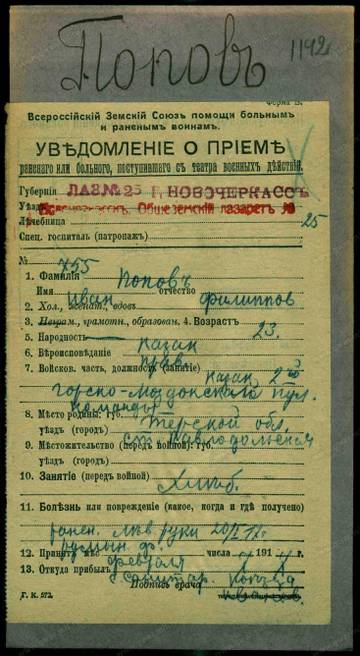 Поповъ 1142
Форма В.
Всероссійскій Земскій Союзъ помощи больнымъ
и раненымъ воинамъ.
УВѢДОМЛЕНІЕ О ПРІЕМѢ
раненаго или больного, поступившаго съ театра военныхъ дѣйствій.
Губернія ЛАЗ № 25 Г. НОВОЧЕРКАССЪ
Уѣздъ Новочеркасскъ. Общеземскій лазаретъ №
Лѣчебница 25
Спец. госпиталь (патронажъ)
№ 755
1. Фамилія Поповъ
Имя Иван отчество Филиппов
2. Хол., женат., вдовъ
3. Неграм., грамотн., образован. 4. Возрастъ 23.
5. Народность казак
6. Вѣроисповѣданіе прав.
7. Войсков. часть, должность (занятіе) казак 2го
Горско-Моздокскаго пул.
команды
8. Мѣсто родины: губ. Терской обл.
уѣздъ (городъ)
9. Мѣстожительство (передъ войной): губ. ст. Павлодольская
уѣздъ (городъ)
10. Занятіе (передъ войной) Хлѣб.
11. Болѣзнь или поврежденіе (какое, когда и гдѣ получено)
ранен. лѣв руки
румын. ф.
12. Принятъ февраля числа 191 г.
13. Откуда прибылъ санитар. поѣзд
Подпись врача
Г. К. 972.